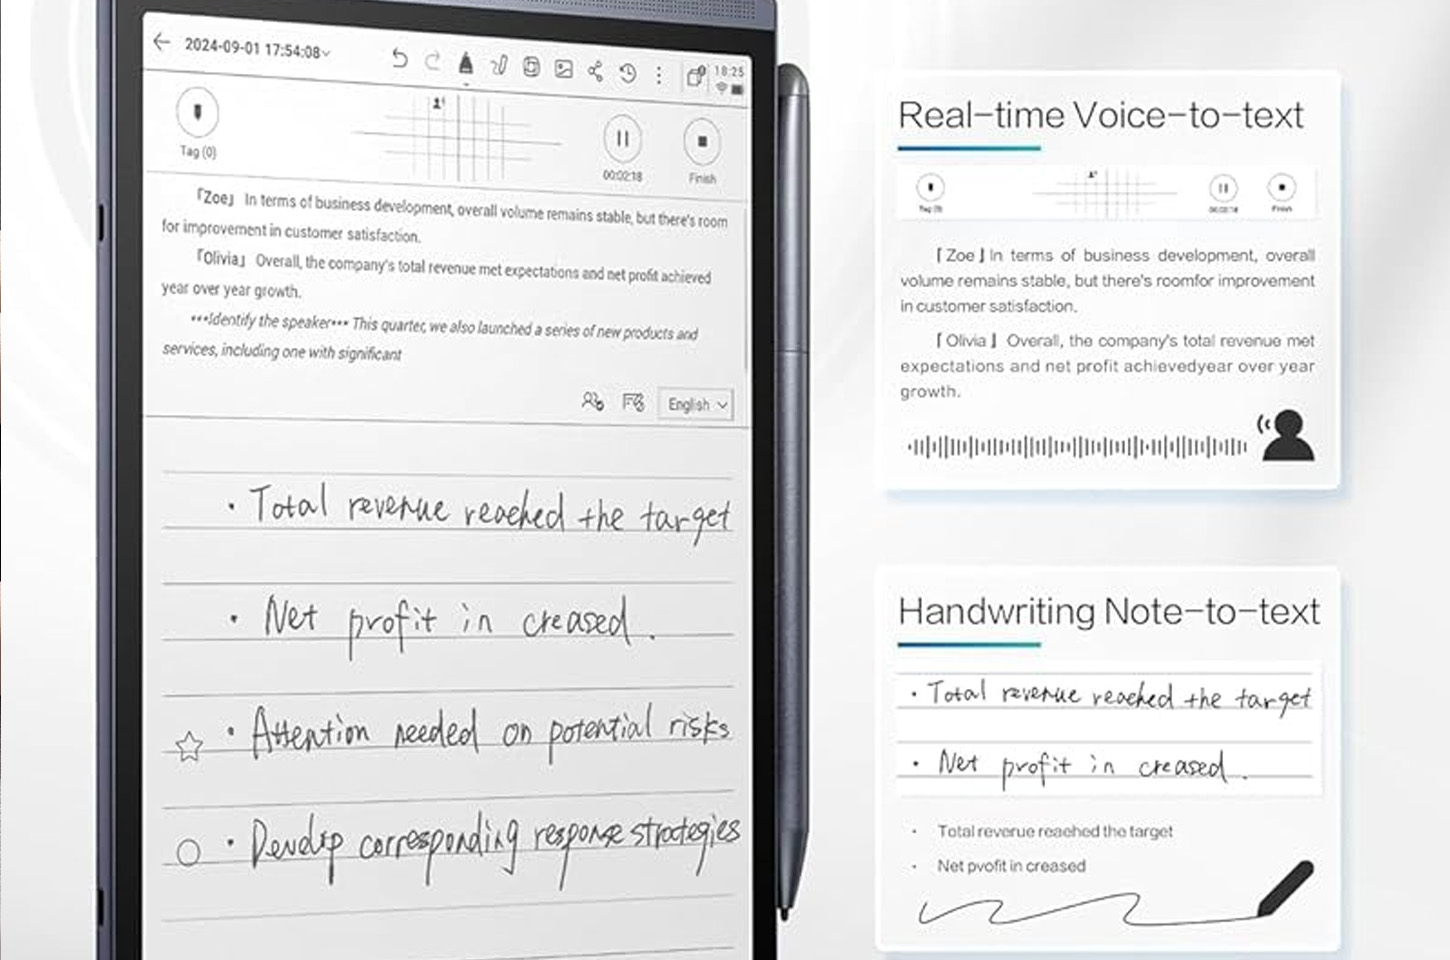 2024-09-01 17:54:08
18:25
Tag (0)
00:02:18
Finish
「Zoe」 In terms of business development, overall volume remains stable, but there's room
for improvement in customer satisfaction.
「Olivia」 Overall, the company's total revenue met expectations and net profit achieved
year over year growth.
***Identify the speaker*** This quarter, we also launched a series of new products and
services, including one with significant
English
· Total revenue reached the target
· Net profit in creased.
· Attention needed on potential risks
· Develop corresponding response strategies
Real-time Voice-to-text
Tag (0)
00:02:18
Finish
「Zoe」In terms of business development, overall
volume remains stable, but there's roomfor improvement
in customer satisfaction.
「Olivia」 Overall, the company's total revenue met
expectations and net profit achievedyear over year
growth.
Handwriting Note-to-text
· Total revenue reached the target
· Net profit in creased.
· Total revenue reaehed the target
· Net pvofit in creased